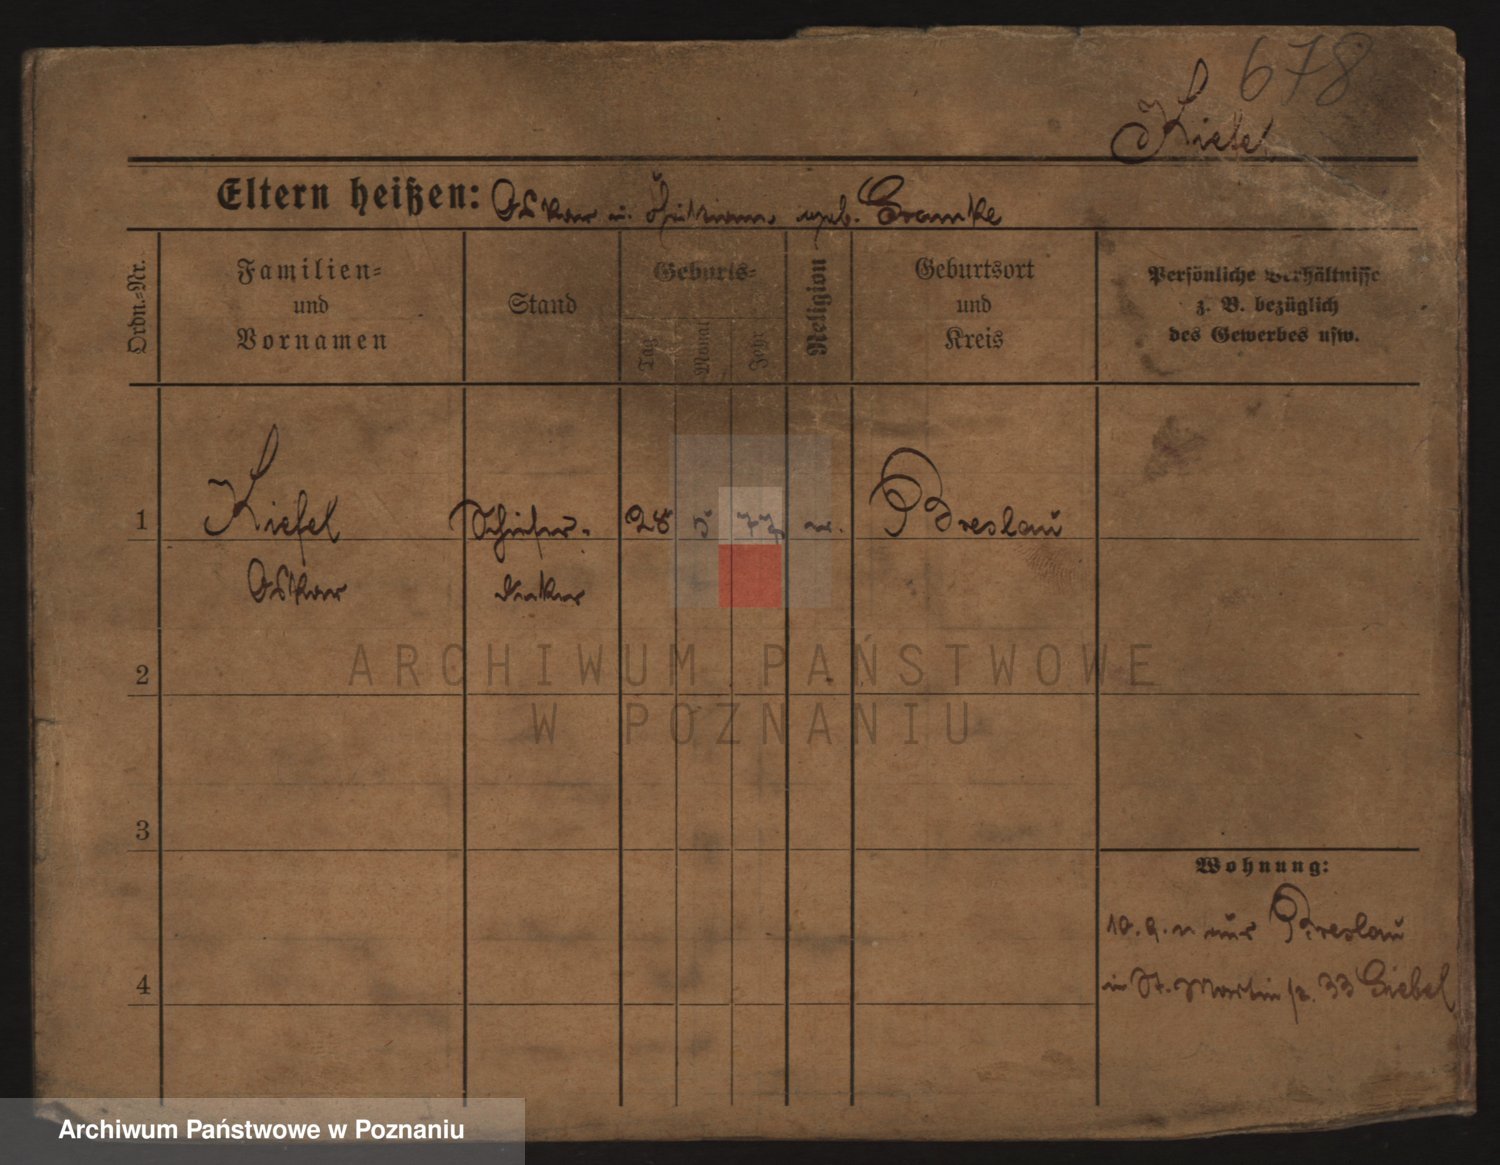 678
Kiefel
Eltern heißen: Oskar u. geb. Gramke
Ordn.-Nr.
Familien-
und
Vornamen
Stand
Geburts-
Tag
Monat
Jahr
Religion
Geburtsort
und
Kreis
Persönliche Verhältnisse
z. B. bezüglich
des Gewerbes usw.
1 Kiefel Schiefer- 28 5 77 Breslau
Oskar decker
2
3
4
Wohnung:
10. 9. aus Breslau
in St. Martin 33 Giebel
ARCHIWUM PAŃSTWOWE
W POZNANIU
Archiwum Państwowe w Poznaniu